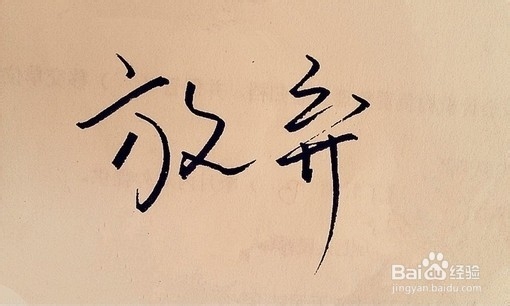 放弃
Bai经验
jingyan.baidu.com